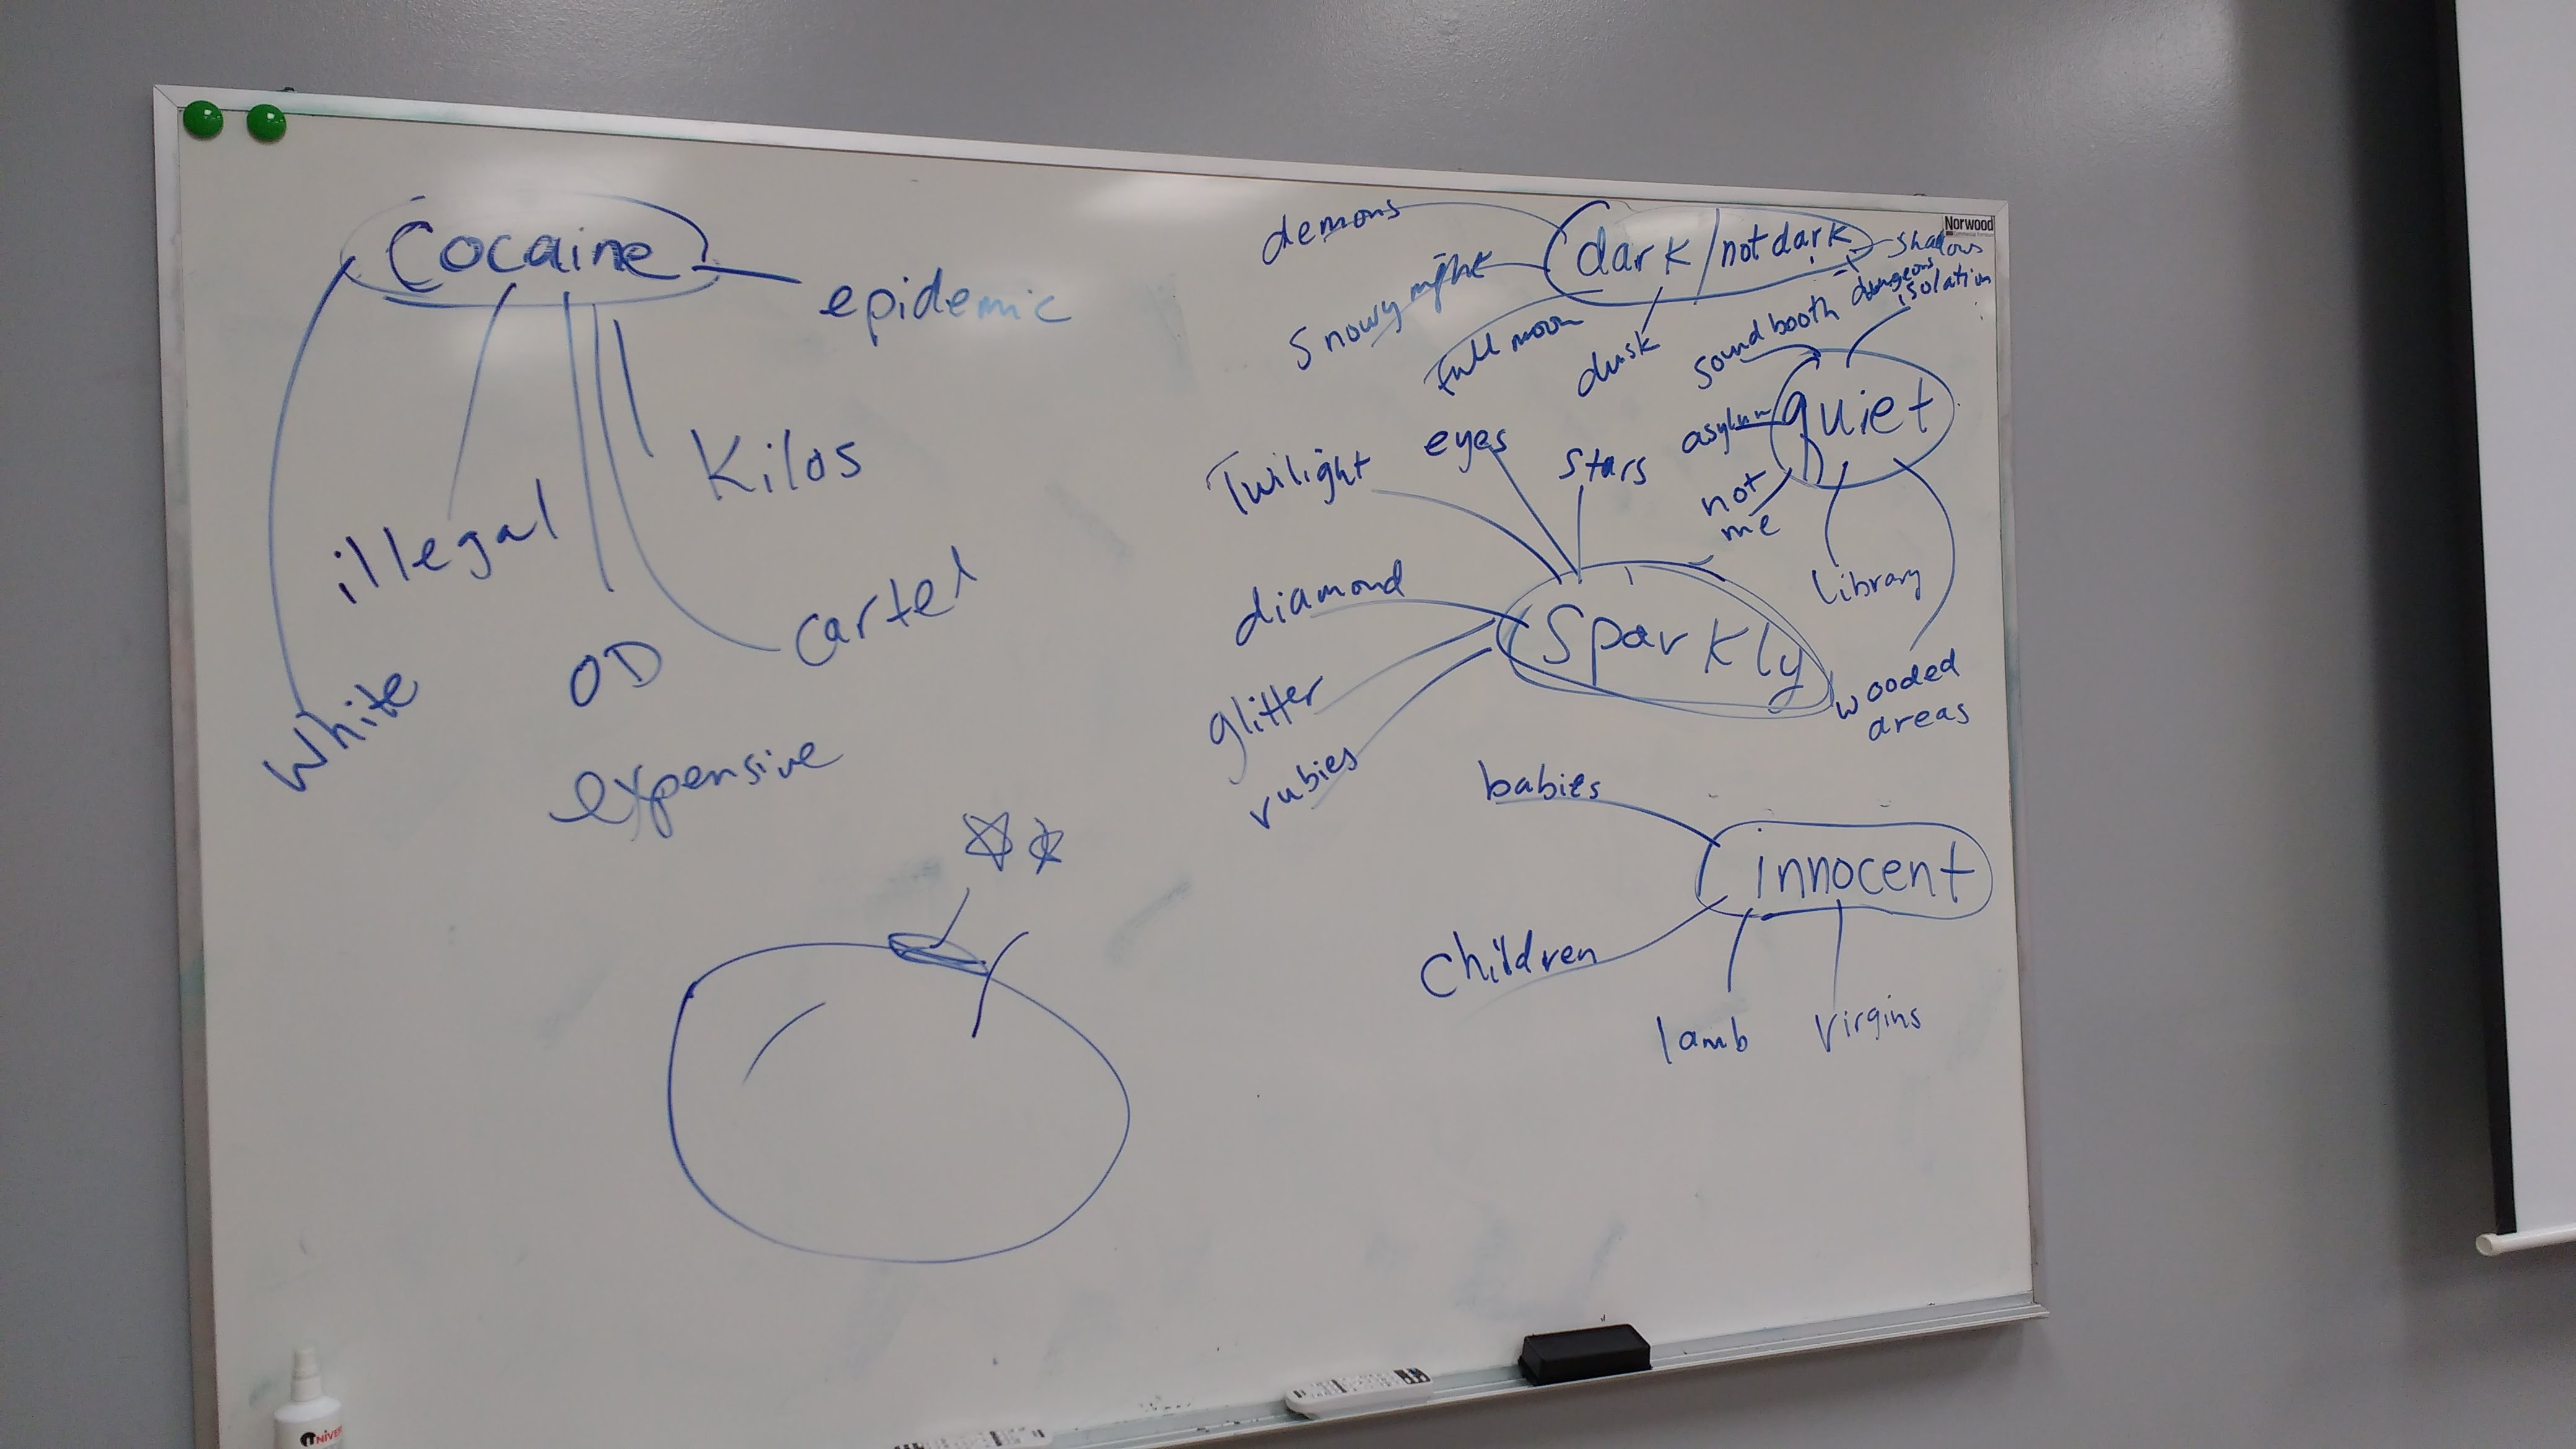 Cocaine
epidemic
Kilos
illegal
cartel
OD
White
expensive
demons
dark/not dark
shadows
Snowy night
dungeons
isolation
Full moon
dusk
sound booth
quiet
asylum
not
me
library
wooded
areas
Twilight
eyes
stars
diamond
Sparkly
glitter
rubies
babies
innocent
Children
lamb
Virgins
Norwood
UNIVER